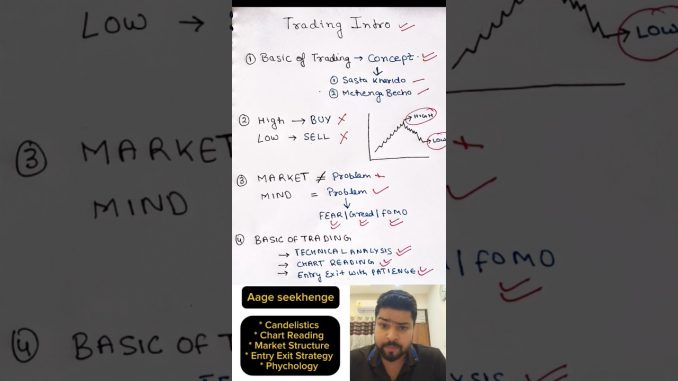 Trading Intro
① Basic of Trading → Concept.
① Sasta Kharido
② Mehenga Becho
② High → BUY ✗
LOW → SELL ✗
HIGH
LOW
③ MARKET ≠ Problem
MIND = Problem
FEAR/Greed/FOMO
④ BASIC OF TRADING
→ TECHNICAL ANALYSIS
→ CHART READING
→ Entry Exit with PATIENCE
Aage seekhenge
* Candelistics
* Chart Reading
* Market Structure
* Entry Exit Strategy
* Phychology
LOW →
LOW
③ MARKET
MIND
/FOMO
④ BASIC OF T